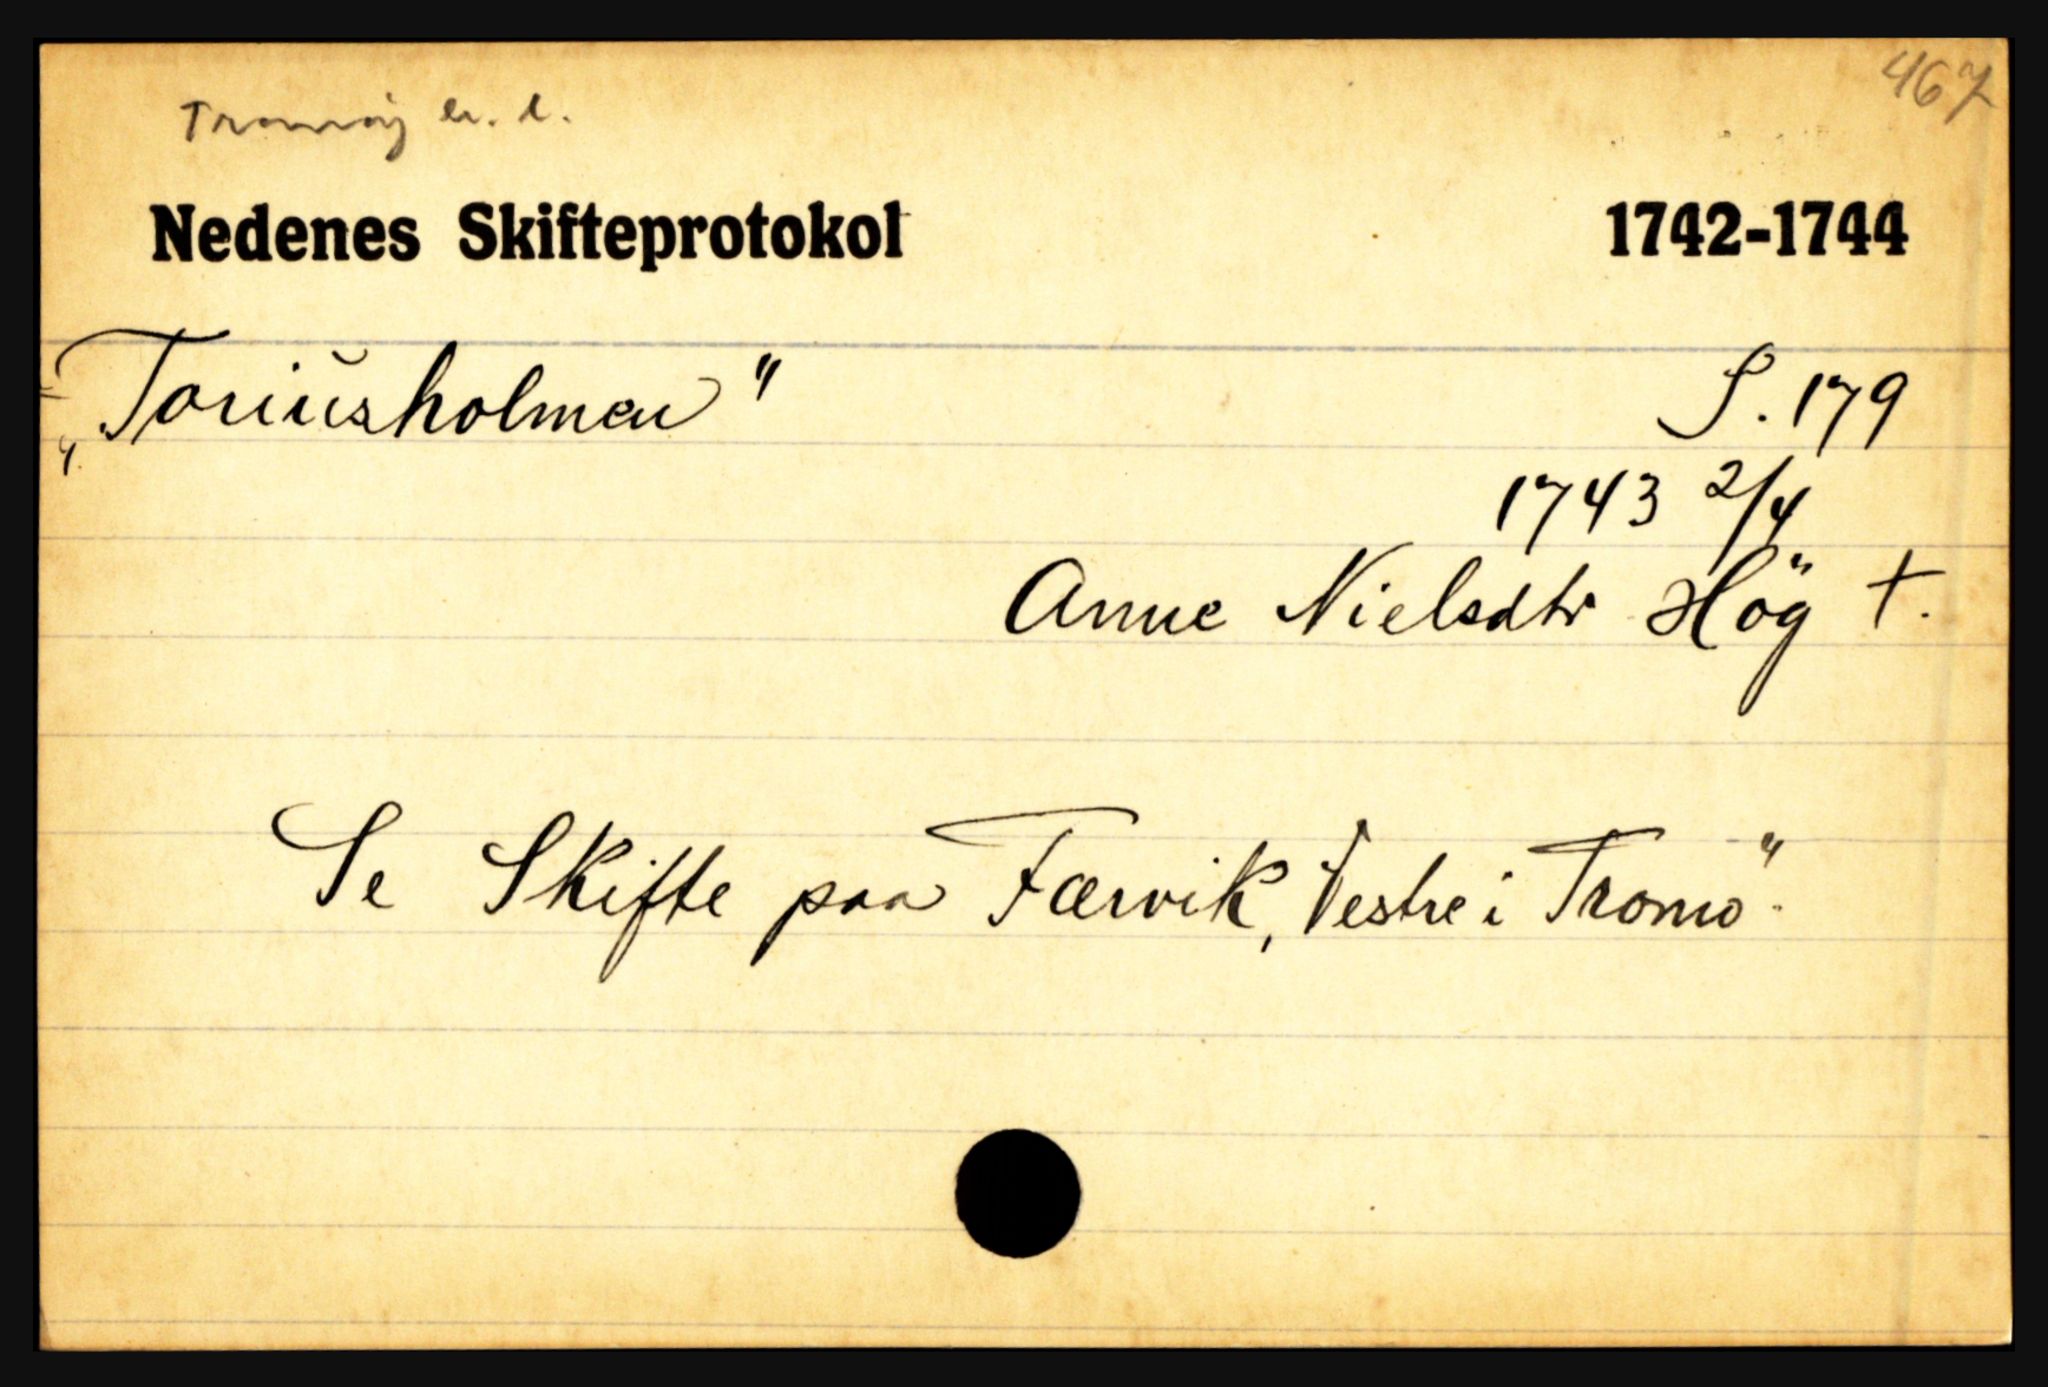 467
Tromöy l. l.
Nedenes Skifteprotokol 1742-1744
„Toriusholmen" S. 179
1743 2/4
Anne Nielsdtr Hög †.
Se Skifte paa Færvik, Vestre i Tromö.